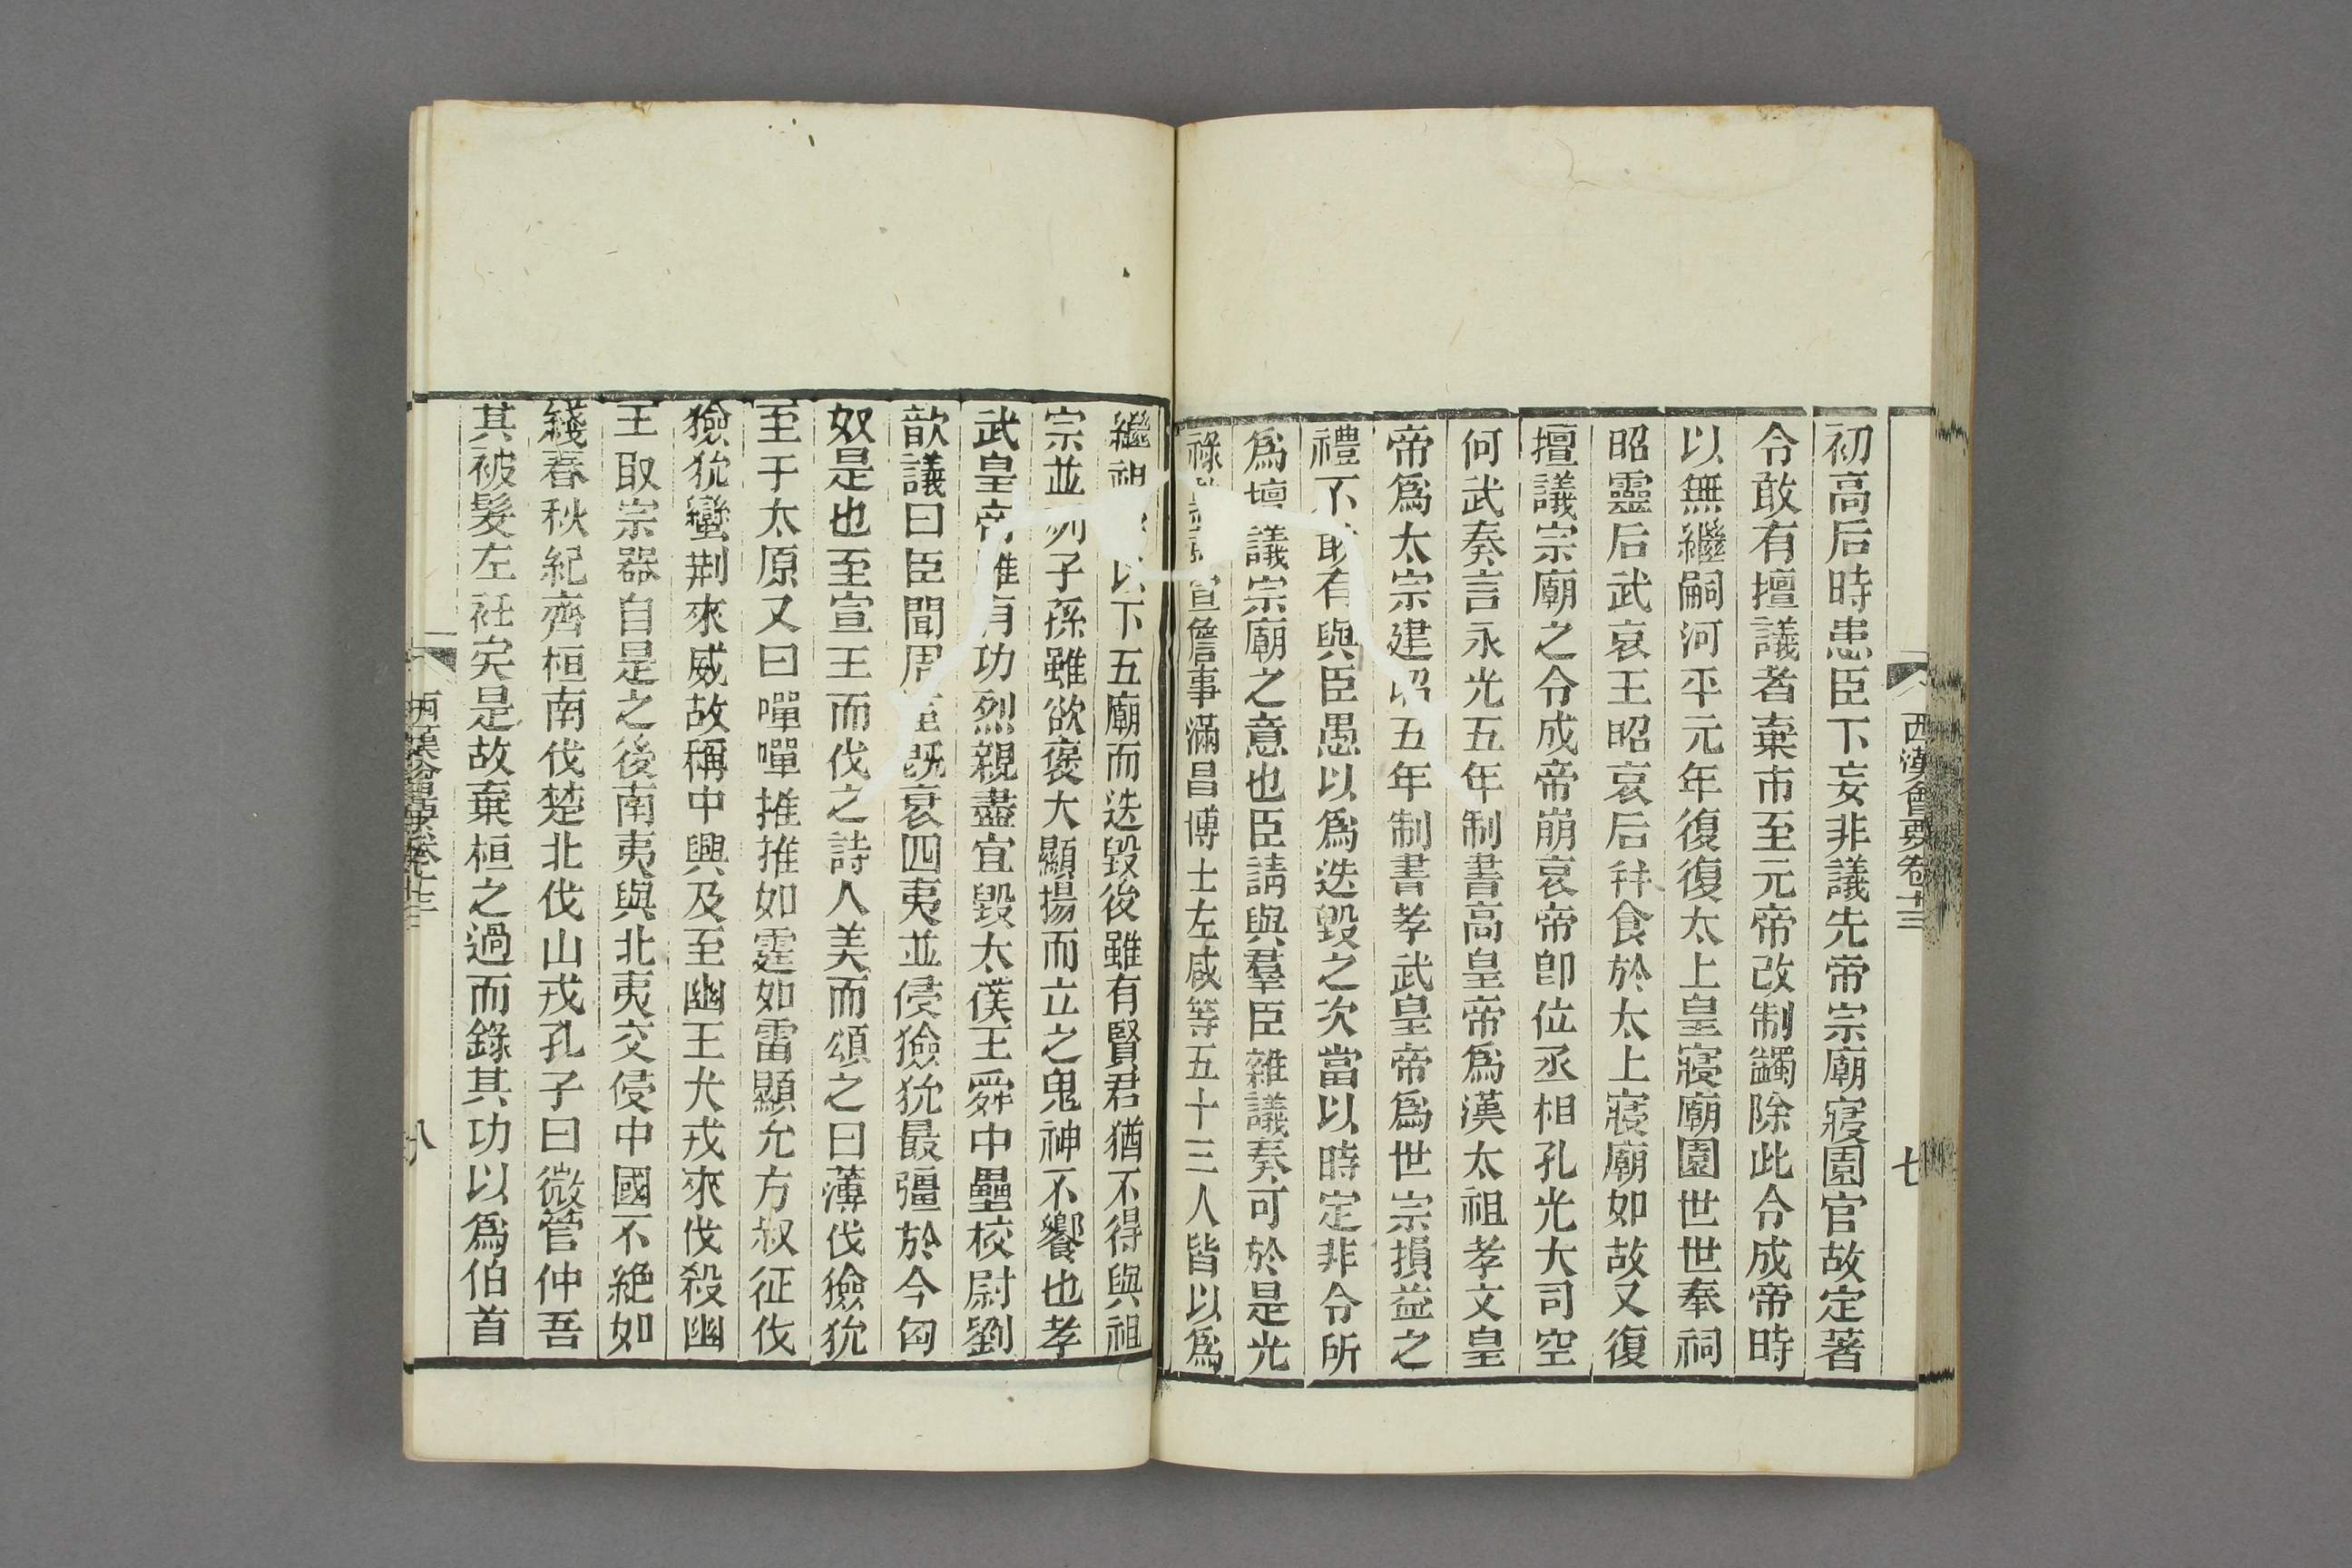 西漢會要卷十三
七
初高后時患臣下妄非議先帝宗廟寢園官故定著
令敢有擅議者棄市至元帝改制蠲除此令成帝時
以無繼嗣河平元年復復太上皇寢廟園世世奉祠
昭靈后武哀王昭哀后幷食於太上寢廟如故又復
擅議宗廟之令成帝崩哀帝卽位丞相孔光大司空
何武奏言永光五年制書高皇帝爲漢太祖孝文皇
帝爲太宗建昭五年制書孝武皇帝爲世宗損益之
禮不敢有與臣愚以爲迭毀之次當以時定非令所
爲壇議宗廟之意也臣請與羣臣雜議奏可於是光
祿勳彭宣詹事滿昌博士左咸等五十三人皆以爲
繼祖以下五廟而迭毀後雖有賢君猶不得與祖
宗並列子孫雖欲褒大顯揚而立之鬼神不饗也孝
武皇帝雖有功烈親盡宜毀太僕王舜中壘校尉劉
歆議曰臣聞周室旣衰四夷並侵獫狁最彊於今匈
奴是也至宣王而伐之詩人美而頌之曰薄伐獫狁
至于太原又曰嘽嘽推推如霆如雷顯允方叔征伐
獫狁蠻荆來威故稱中興及至幽王犬戎來伐殺幽
王取宗器自是之後南夷與北夷交侵中國不絕如
綫春秋紀齊桓南伐楚北伐山戎孔子曰微管仲吾
其被髮左衽矣是故棄桓之過而錄其功以爲伯首
西漢會要卷十三
八